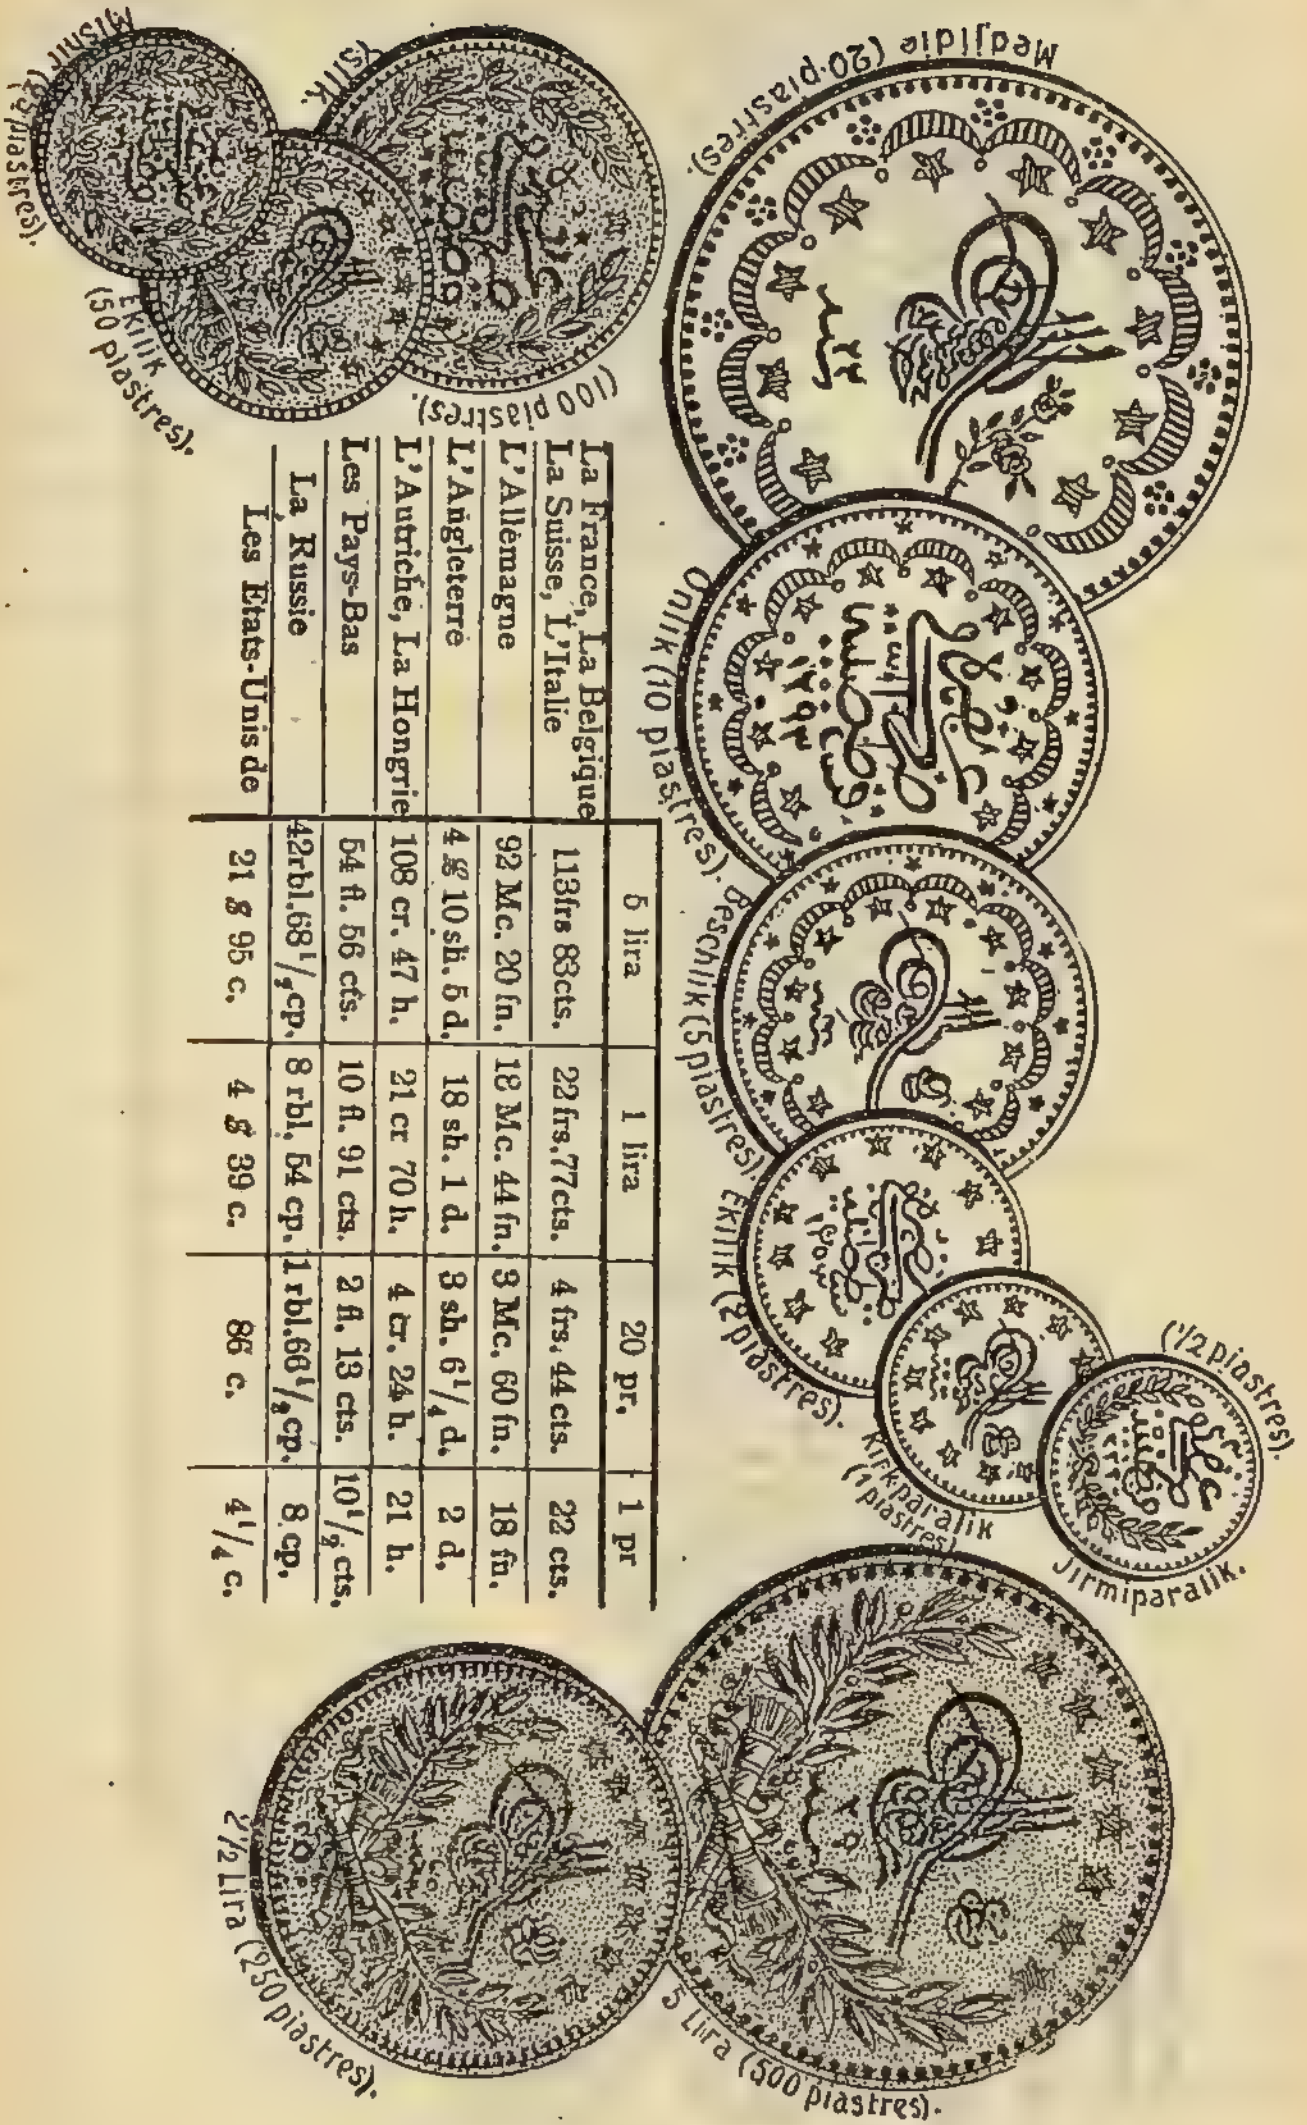 Medjidie (20 piastres).
Onlik (10 piastres).
Beschlik (5 piastres).
Ekilik (2 piastres).
Kirkparalik
(1 piastres)
(1/2 piastres).
Jirmiparalik.
Ysilik.
(100 piastres).
Ekilik
(50 piastres).
(25 piastres).
5 lira 1 lira 20 pr, 1 pr
La France, La Belgique
La Suisse, L'Italie 113frs 83cts. 22frs.77cts. 4 frs. 44 cts. 22 cts.
L'Allèmagne 92 Mc. 20 fn. 18 Mc. 44 fn. 3 Mc. 60 fn. 18 fn.
L'Angleterre 4 £ 10 sh. 5 d. 18 sh. 1 d. 3 sh. 6 1/4 d. 2 d.
L'Autriche, La Hongrie 108 cr. 47 h. 21 cr 70 h. 4 cr. 24 h. 21 h.
Les Pays-Bas 54 fl. 56 cts. 10 fl. 91 cts. 2 fl. 13 cts. 10 1/2 cts.
La Russie 42rbl.68 1/2 cp. 8 rbl. 54 cp. 1 rbl.66 1/2 cp. 8 cp.
Les Etats-Unis de 21 $ 95 c. 4 $ 39 c. 86 c. 4 1/4 c.
5 Lira (500 piastres).
2 1/2 Lira (250 piastres).